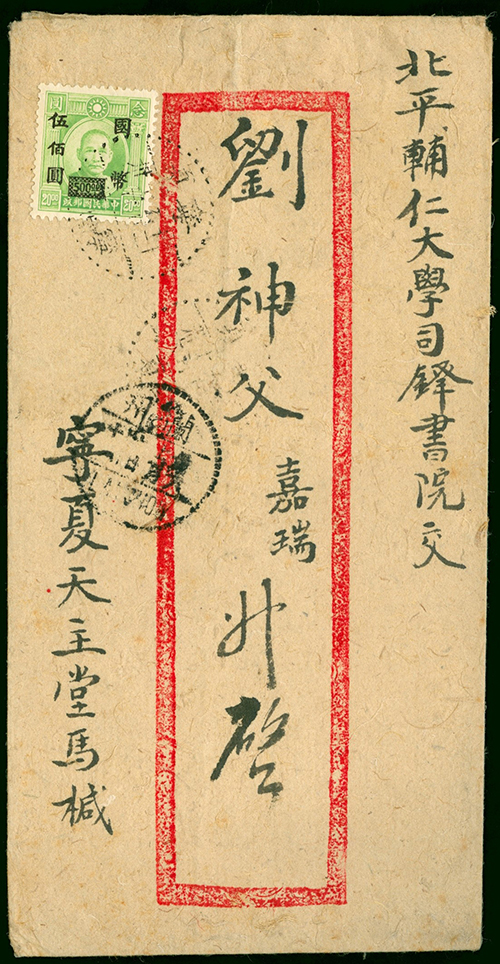 北平輔仁大學司鐸書院交
劉神父嘉瑞升啓
寧夏天主堂馬椷
國幣
伍佰圓
500
中華民國郵政
20 00
20 00
蘭州